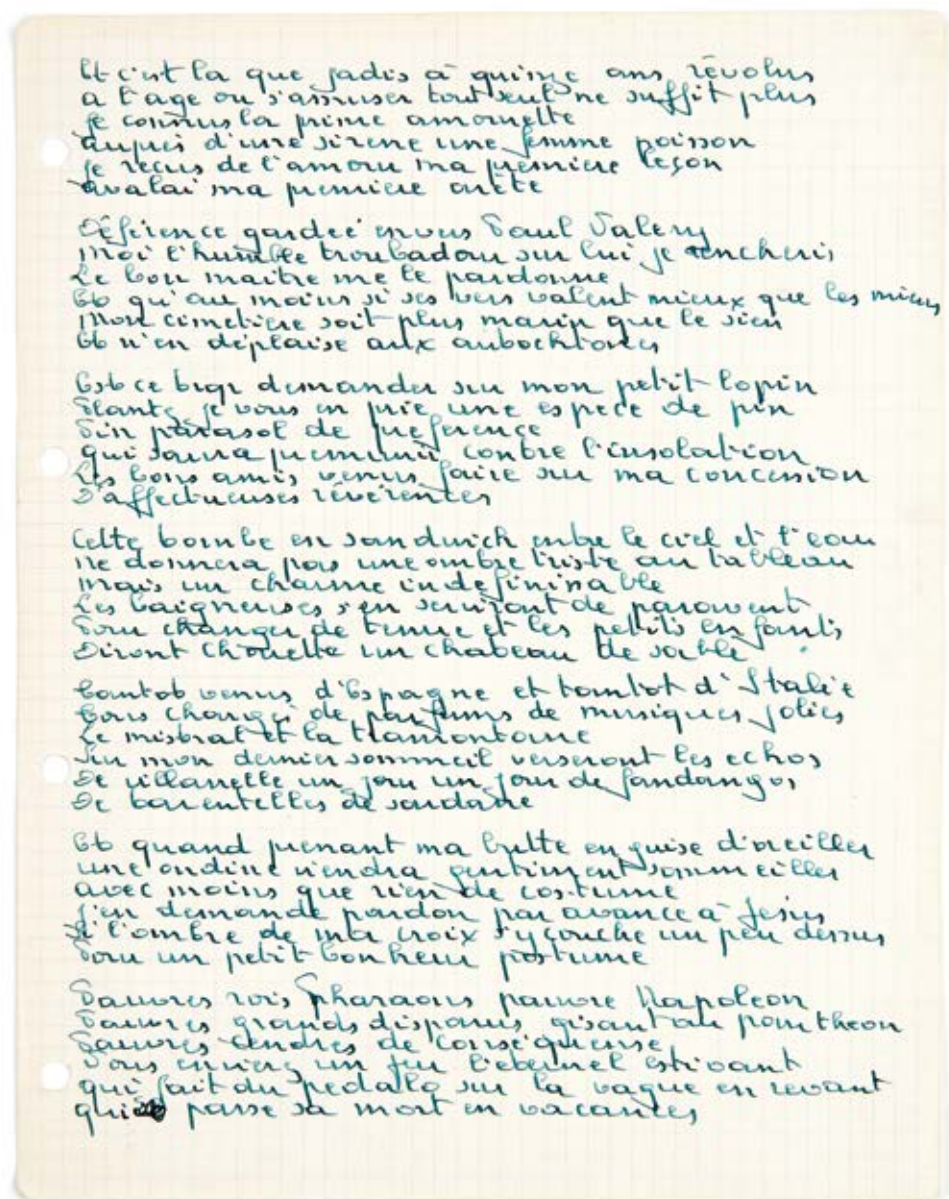 Et c'est la que jadis à quinze ans révolus
a l'age ou s'amuser tout seul ne suffit plus
je connus la prime amourette
aupres d'une sirene une femme poisson
je reçus de l'amour ma premiere leçon
avalai ma premiere arète
Déférence gardée envers Paul Valery
Moi l'humble troubadour sur lui je rencheris
Le bon maître me le pardonne
Et qu'au moins si ses vers valent mieux que les miens
Mon cimetière soit plus marin que le sien
Et n'en déplaise aux autochtones
Est ce trop demander sur mon petit lopin
Plantez je vous en prie une espece de pin
Pin parasol de preference
qui saura prémunir contre l'insolation
Les bons amis venus faire sur ma concession
D'affectueuses reverences
Cette tombe en sandwich entre le ciel et l'eau
ne donnera pas une ombre triste au tableau
mais un charme indefinissable
Les baigneuses s'en serviront de paravent
Pour changer de tenue et les petits enfants
Diront chouette un chateau de sable
Tantot venus d'Espagne et tantot d'Italie
Tous chargés de parfums de musiques jolies
Le mistral et la tramontane
Sur mon dernier sommeil verseront les echos
De villanelle un jour un jour de fandangos
De tarentelles de sardane
Et quand prenant ma butte en guise d'oreiller
une ondine viendra gentiment sommeiller
avec moins que rien de costume
J'en demande pardon par avance à Jesus
Si l'ombre de ma croix s'y couche un peu dessus
Pour un petit bonheur postume
Pauvres rois Pharaons pauvre Napoleon
Pauvres grands disparus gisant au pantheon
Pauvres cendres de consequense
Vous envierez un peu l'eternel estivant
qui fait du pedalo sur la vague en revant
qui passe sa mort en vacances